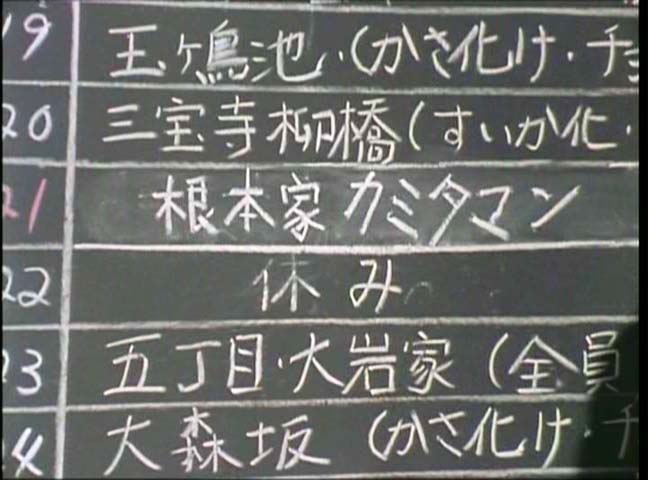 19 玉ヶ島池・(かさ化け・チョ
20 三宝寺柳橋(すいか化・
21 根本家 カミタマン
22 休み
23 五丁目・大岩家(全員
24 大森坂(かさ化け・チ